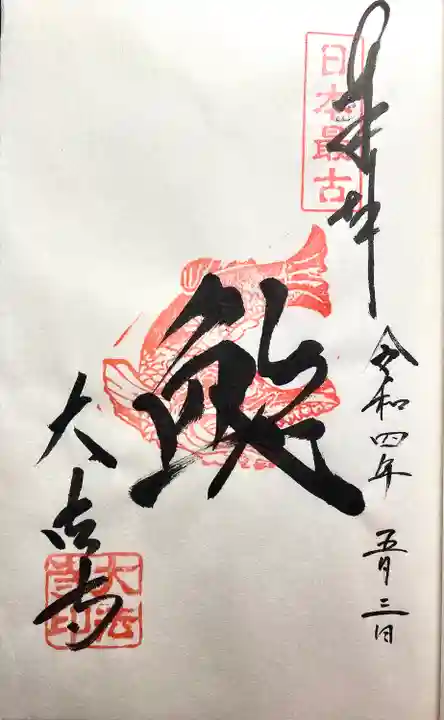 奉拝
日本最古
令和四年 五月三日
鯱
大法寺
大法寺印